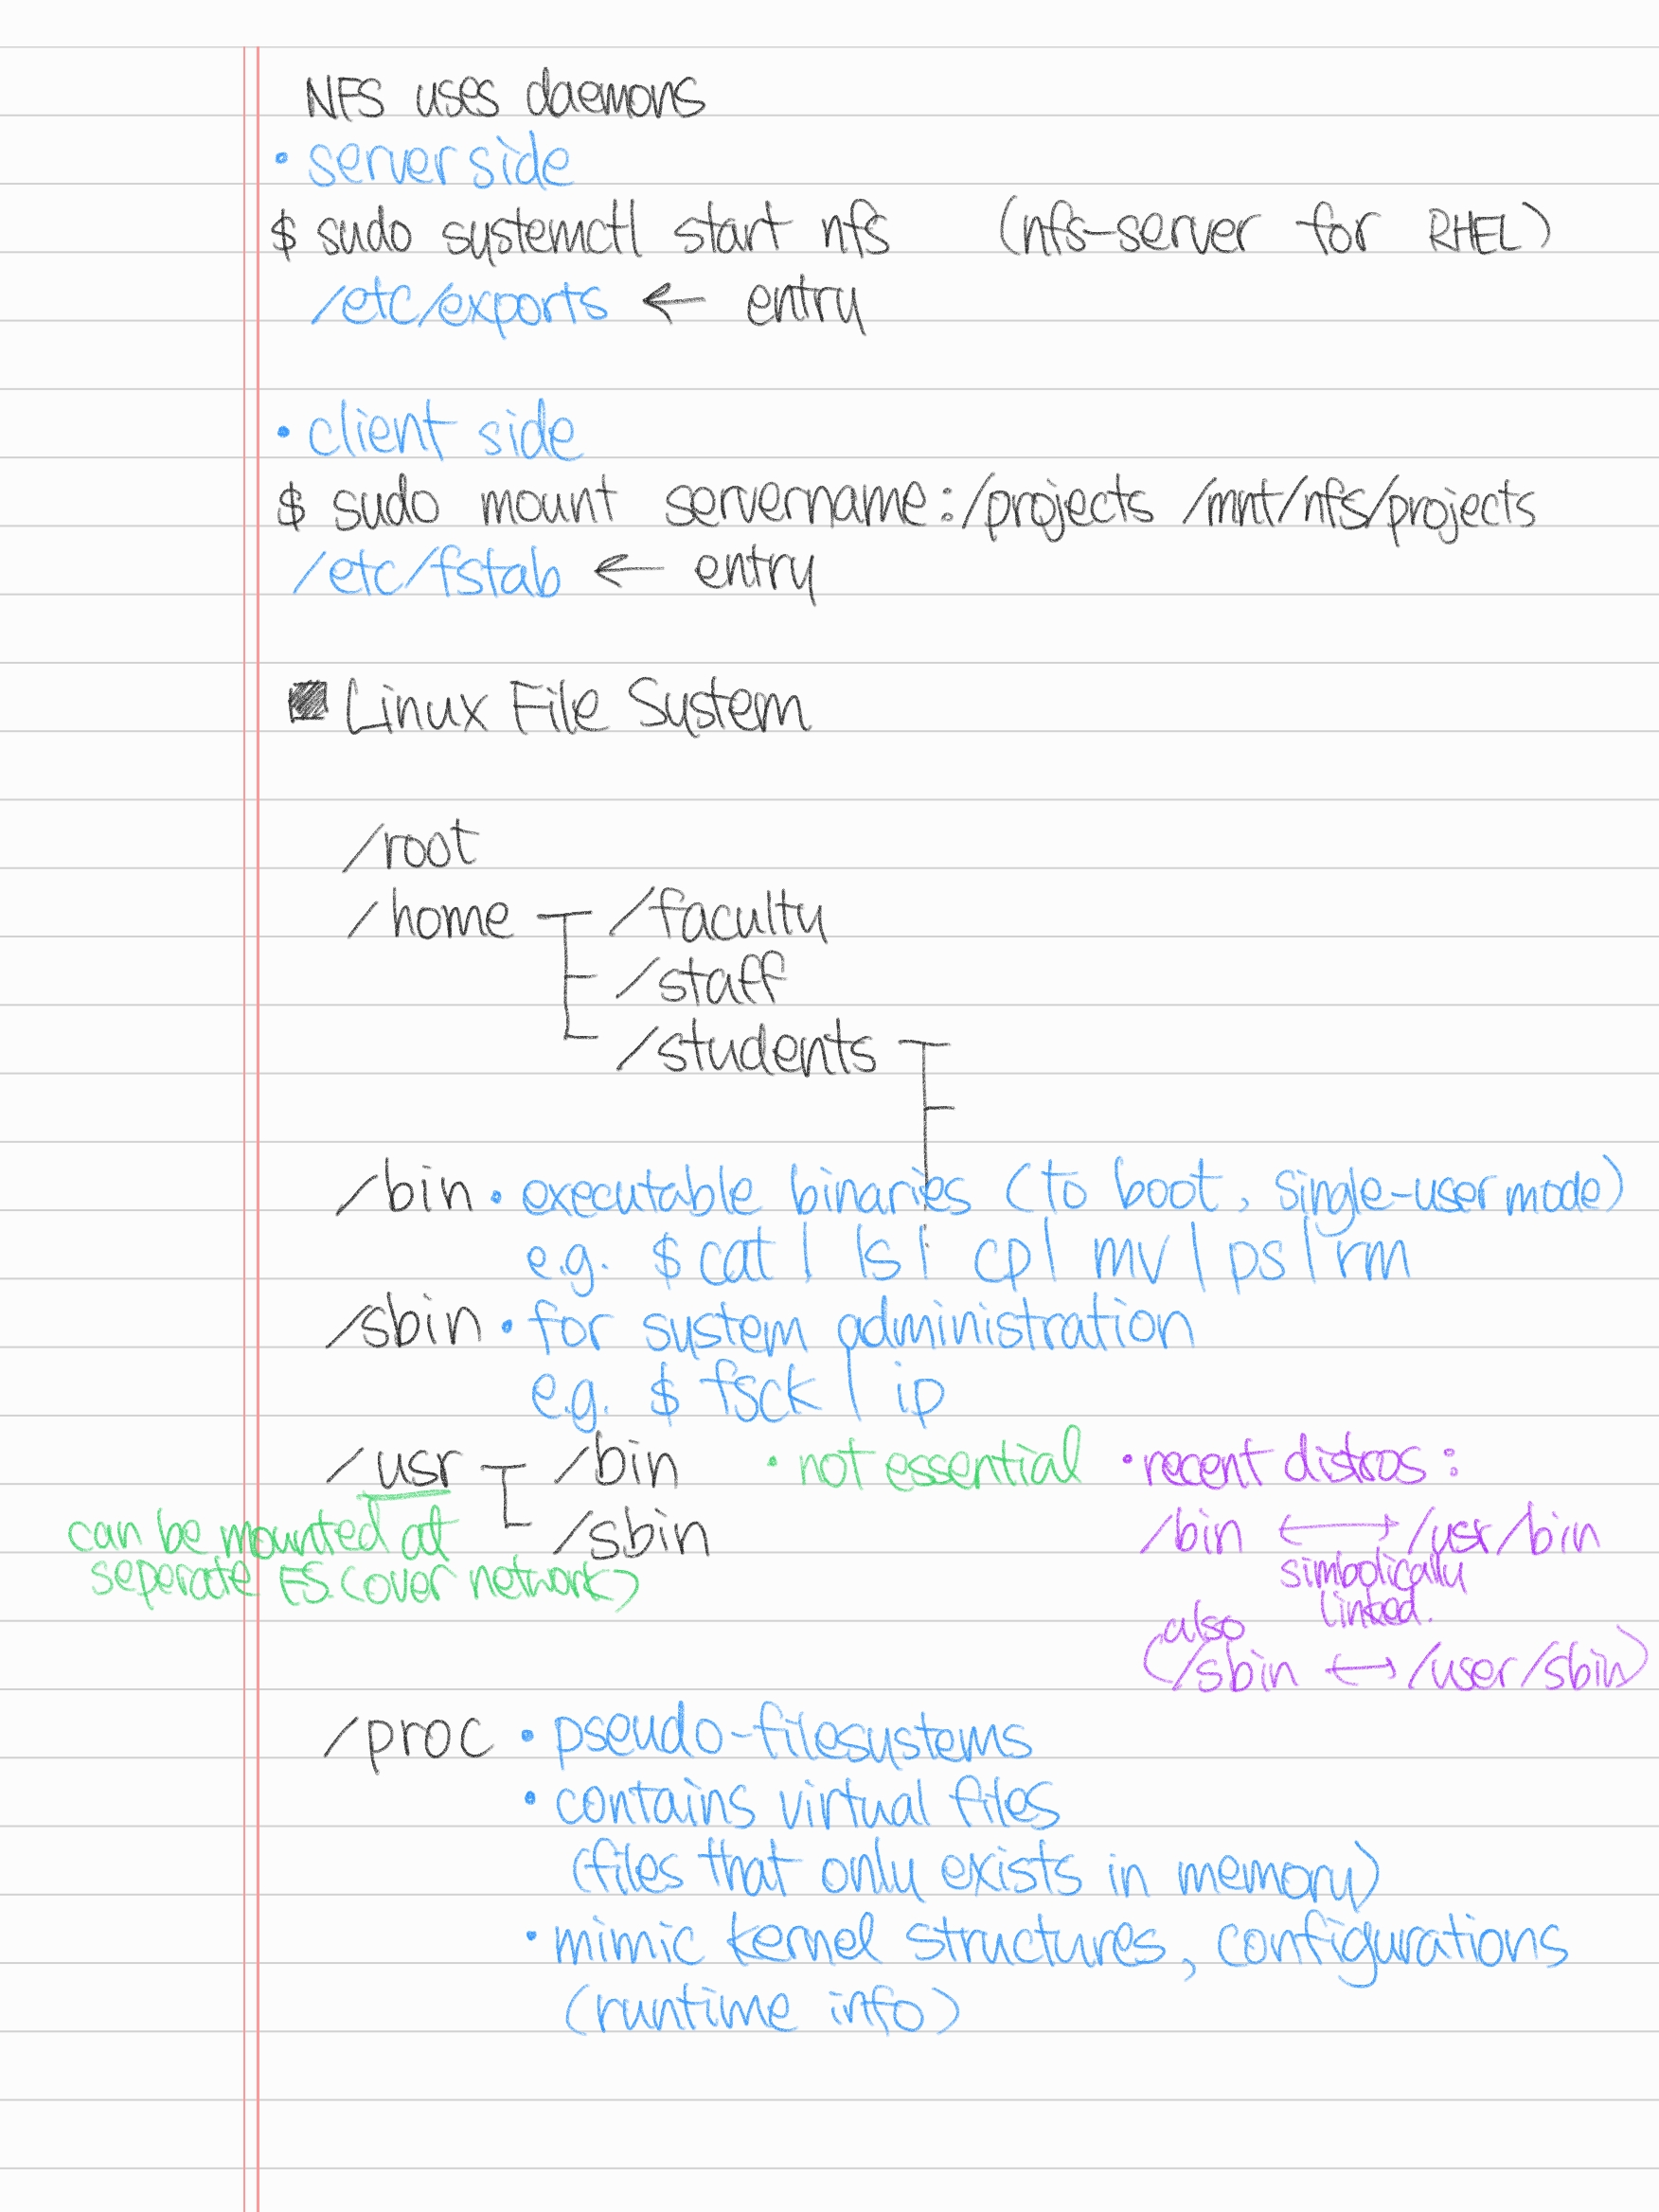 NFS uses daemons
• server side
$ sudo systemctl start nfs (nfs-server for RHEL)
/etc/exports ← entry
• client side
$ sudo mount servername:/projects /mnt/nfs/projects
/etc/fstab ← entry
■ Linux File System
/root
/home /faculty
/staff
/students
/bin • executable binaries (to boot, single-user mode)
e.g. $ cat | ls | cp | mv | ps | rm
/sbin • for system administration
e.g. $ fsck | ip
/usr /bin • not essential • recent distros:
can be mounted at /sbin /bin ↔ /usr/bin
seperate FS. (over network) simbolically
linked.
also
(/sbin ↔ /user/sbin)
/proc • pseudo-filesystems
• contains virtual files
(files that only exists in memory)
• mimic kernel structures, configurations
(runtime info)